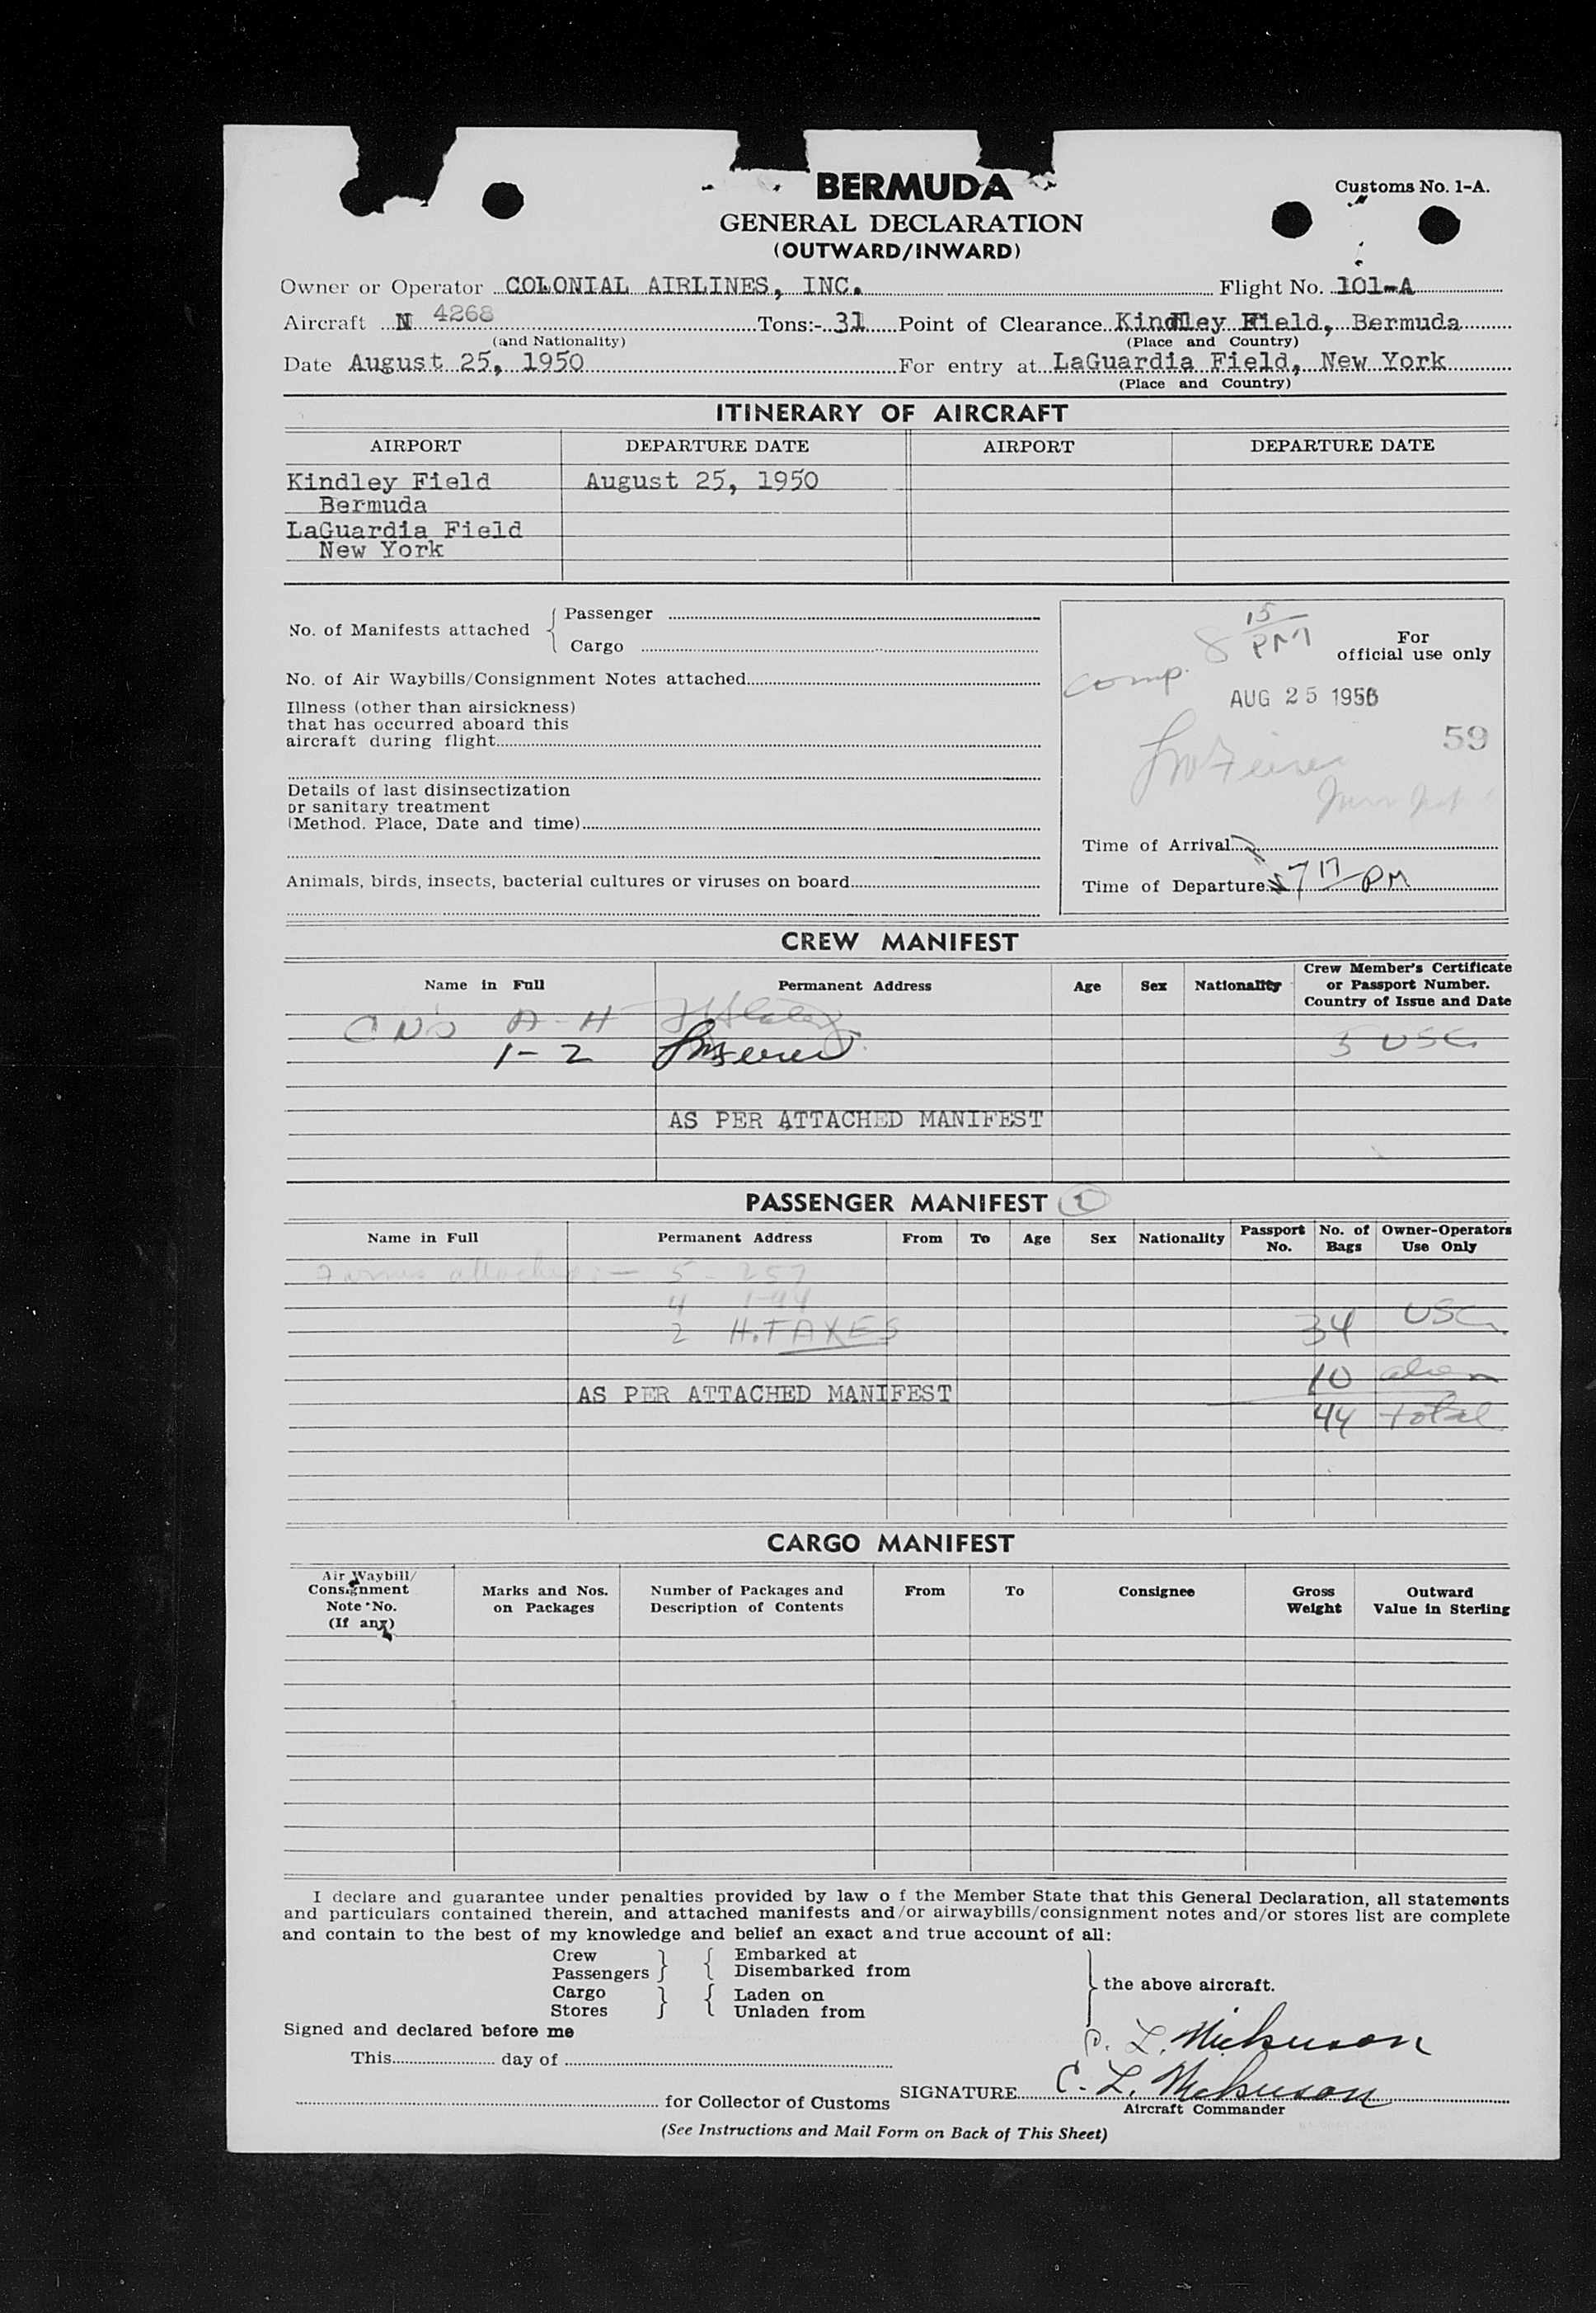 BERMUDA
Customs No. 1-A.
GENERAL DECLARATION
(OUTWARD/INWARD)
Owner or Operator COLONIAL AIRLINES, INC. Flight No. 101-A
Aircraft N 4268 Tons:- 31 Point of Clearance Kindley Field, Bermuda
(and Nationality) (Place and Country)
Date August 25, 1950 For entry at LaGuardia Field, New York
(Place and Country)
ITINERARY OF AIRCRAFT
AIRPORT DEPARTURE DATE AIRPORT DEPARTURE DATE
Kindley Field August 25, 1950
Bermuda
LaGuardia Field
New York
No. of Manifests attached { Passenger
Cargo
15
8 PM
For
official use only
comp.
No. of Air Waybills/Consignment Notes attached
AUG 25 1950
Illness (other than airsickness)
that has occurred aboard this
aircraft during flight
59
Details of last disinsectization
or sanitary treatment
(Method. Place, Date and time)
Time of Arrival
Animals, birds, insects, bacterial cultures or viruses on board
Time of Departure 7 17 PM
CREW MANIFEST
Name in Full Permanent Address Age Sex Nationality Crew Member's Certificate
or Passport Number.
Country of Issue and Date
A-H
1-2
5 USC
AS PER ATTACHED MANIFEST
PASSENGER MANIFEST 1
Name in Full Permanent Address From To Age Sex Nationality Passport No. No. of Bags Owner-Operators Use Only
Forms attached:- 5 - 257
4 1-94
2 H.TAXES
34 USC
10 alien
AS PER ATTACHED MANIFEST
44 total
CARGO MANIFEST
Air Waybill/
Consignment
Note No.
(If any)
Marks and Nos.
on Packages
Number of Packages and
Description of Contents
From To Consignee
Gross
Weight
Outward
Value in Sterling
I declare and guarantee under penalties provided by law o f the Member State that this General Declaration, all statements
and particulars contained therein, and attached manifests and/or airwaybills/consignment notes and/or stores list are complete
and contain to the best of my knowledge and belief an exact and true account of all:
Crew } { Embarked at
Passengers } { Disembarked from
the above aircraft.
Cargo } { Laden on
Stores } { Unladen from
Signed and declared before me
This day of
for Collector of Customs SIGNATURE C. L.
Aircraft Commander
(See Instructions and Mail Form on Back of This Sheet)